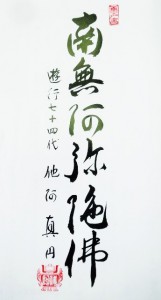 南無阿弥陀佛
遊行七十四代
他阿真円